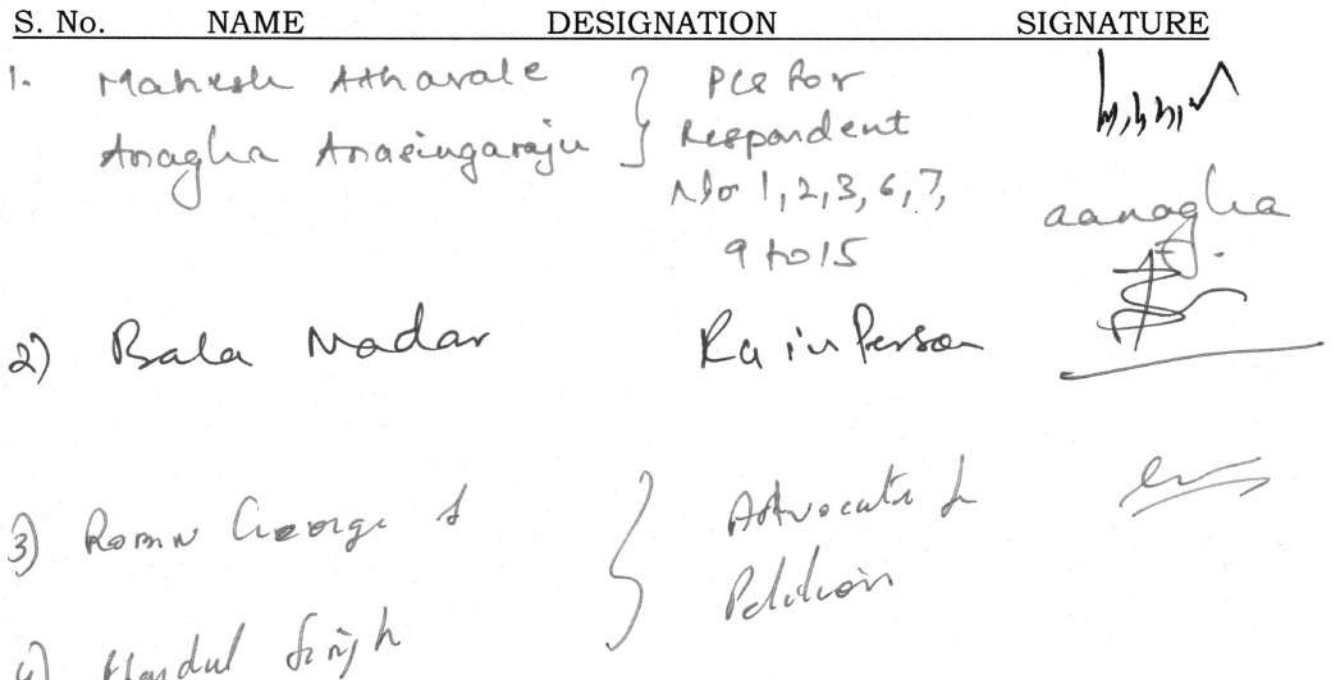 S. No. NAME DESIGNATION SIGNATURE
1. Mahesh Athavale } PCS for
Anagha Anasingaraju Respondent
No 1, 2, 3, 6, 7,
9 to 15
aanagha
2) Bala Nadar in Person
3) George & } Advocate
Petition
4) Singh